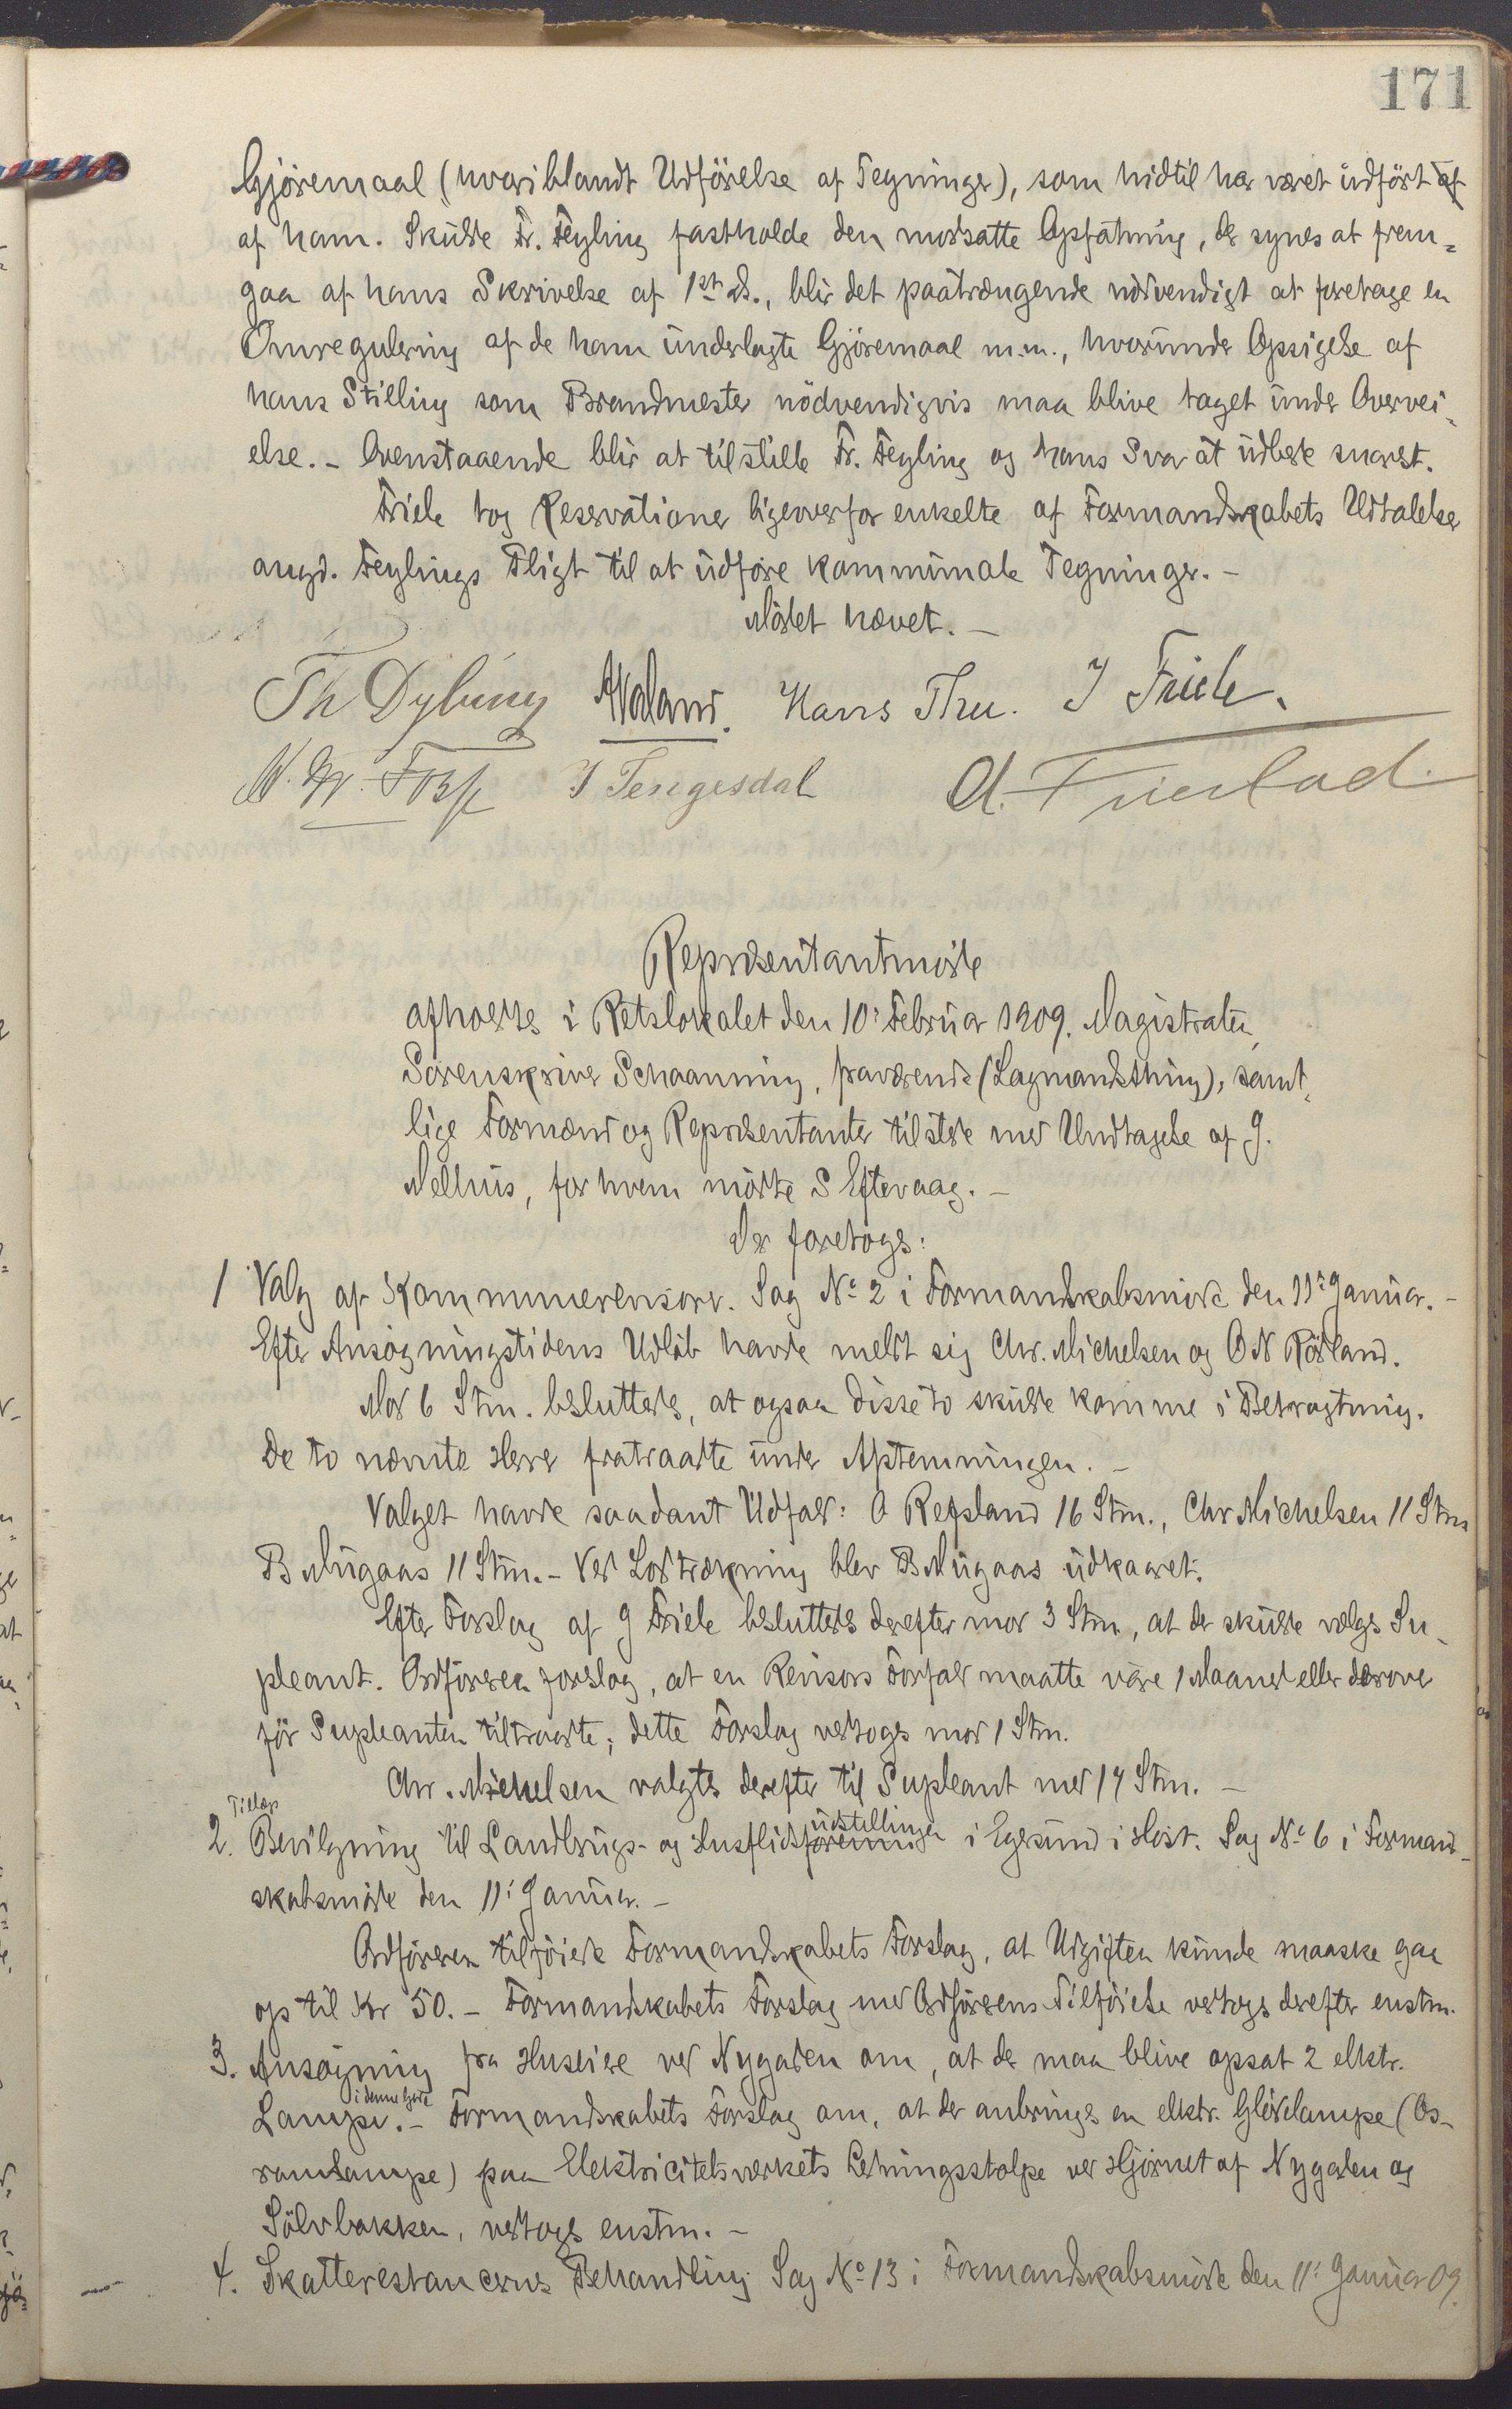 171
Gjöremaal (hvoriblandt Udförelse af Tegninger), som hidtil har været udfört af
af ham. Skulde Fr. Feyling fastholde den modsatte Opfatning, der synes at frem-
gaa af hans Skrivelse af 1st ds., blir det paatrængende nödvendigt at foretage en
Omregulering af de ham underlagte Gjöremaal m.m., hvorunder Opsigelse af
hans Stilling som Brandmester nödvendigvis maa blive taget under Overvei-
else. - Ovenstaaende blir at tilstille Fr. Feyling og hans Svar at udbede snarest.
Friele tog Reservationer ligeoverfor enkelte af Formandskabets Udtalelser
angd. Feylings Pligt til at udföre kommunale Tegninger. -
Mödet hævet. -
Th Dybing Aaland. Hans Thu. J Friele.
J Tengesdal A. Frestad.
Repræsentantmöde
afholdtes i Retslokalet den 10: Februar 1909. Magistraten,
Sorenskriver Schaanning, fraværende (Lagmandsthing), samt-
lige Formænd og Repræsentanter tilstede med Undtagelse af J.
Melhus, for hvem mödte S Eftevaag. -
Der foretoges:
1 Valg af Kommunerevisorer. Sag No 2 i Formandskabsmöde den 11: Januar. -
Efter Ansögningstidens Udlöb havde meldt sig Chr. Michelsen og O N Rösland.
Mod 6 Stm. besluttedes, at ogsaa disse to skulde komme i Betragtning.
De to nævnte Herrer fratraadte under Afstemningen. -
Valget havde saadant Udfald: O Refsland 16 Stm., Chr Michelsen 11 Stm
B Mugaas 11 Stm. - Ved Lodtrækning blev B Mugaas udkaaret.
Efter Forslag af J Friele besluttedes derefter mod 3 Stm, at der skulde vælges Su-
pleant. Ordföreren forslog, at en Revisors Forfald maatte være 1 Maaned eller derover
för Supleanten tiltraadte; dette Forslag vedtoges mod 1 Stm.
Chr. Michelsen valgtes derefter til Supleant med 14 Stm. -
Tillæg
2. Bevilgning til Landbrugs- og Husflidsforening udstillingen i Egersund i Höst. Sag No 6 i Formand-
skabsmöde den 11: Januar. -
Ordföreren tilföiede Formandskabets Forslag, at Udgiften kunde maaske gaa
op til Kr 50. - Formandskabets Forslag med Ordförerens Tilföielse vedtoges derefter enstm.
3. Ansögning fra Huseiere ved Nygaden om, at der maa blive opsat 2 elktr.
Lamper i denne Gade. - Formandskabets Forslag om, at der anbringes en elktr. Glödelampe (Os-
ramlampe) paa Elektricitetsverkets Ledningsstolpe ved Hjörnet af Nygaden og
Sölvbakken, vedtoges enstm. -
4. Skatterestancernes Behandling Sag No 13 i Formandskabsmöde den 11: Januar 09.